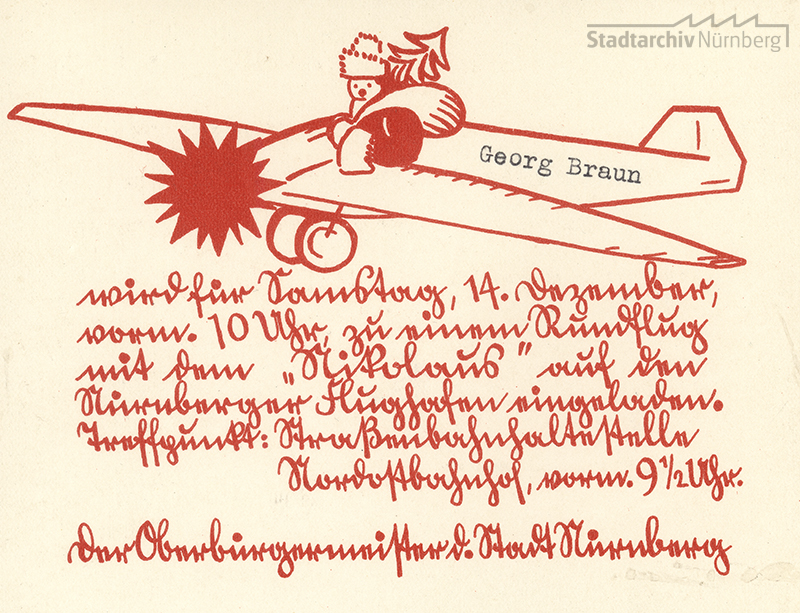 Stadtarchiv Nürnberg
Georg Braun
wird für Samstag, 14. Dezember,
vorm. 10 Uhr, zu einem Rundflug
mit dem „Nikolaus" auf den
Nürnberger Flughafen eingeladen.
Treffpunkt: Straßenbahnhaltestelle
Nordostbahnhof, vorm. 9 1/2 Uhr.
Der Oberbürgermeister d. Stadt Nürnberg